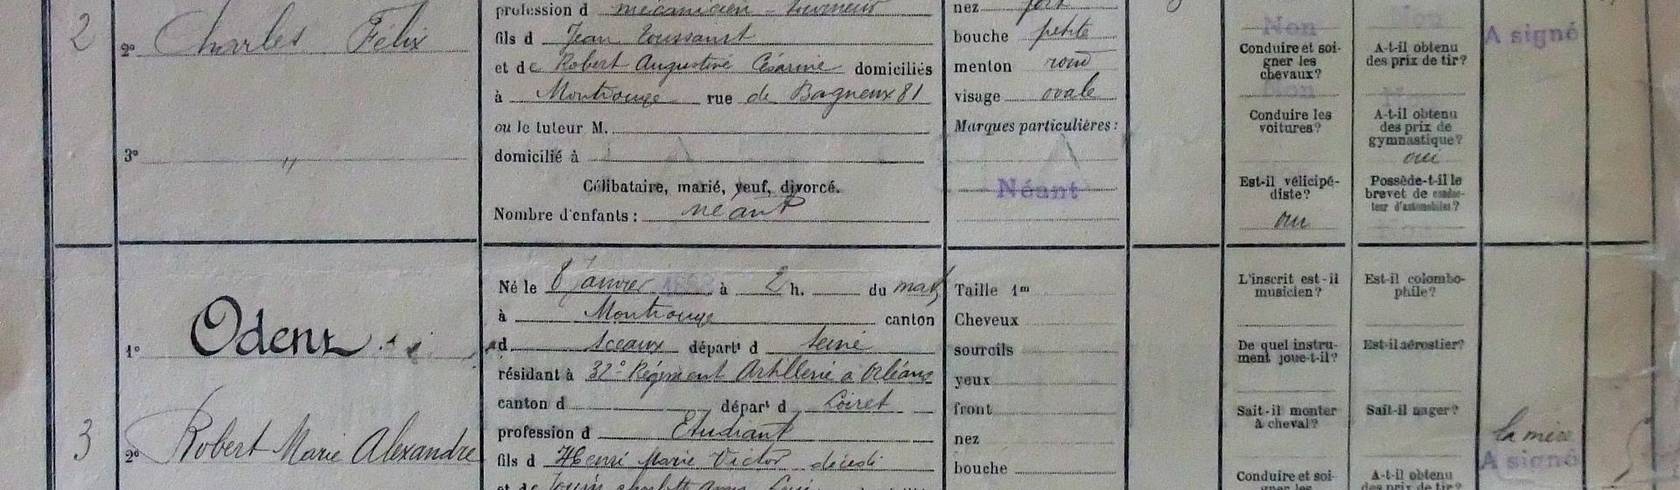 2
2º Charles Félix
3º "
profession d mécanicien - tourneur
fils d Jean Toussaint
et de Robert Augustine Césarine domiciliés
à Montrouge rue de Bagneux 81
ou le tuteur M.
domicilié à
Célibataire, marié, veuf, divorcé.
Nombre d'enfants : néant
nez fort
bouche petite
menton rond
visage ovale
Marques particulières :
Néant
Non
Conduire et soi-
gner les
chevaux?
Non
Conduire les
voitures?
Est-il vélicipé-
diste?
oui
Non
A-t-il obtenu
des prix de tir?
A-t-il obtenu
des prix de
gymnastique?
oui
Possède-t-il le
brevet de conduc-
teur d'automobiles?
A signé
3
1º Odent
2º Robert Marie Alexandre
Né le 8 Janvier à 2 h. du mat
à Montrouge canton
d Sceaux départt d Seine
résidant à 32e Régiment Artillerie à Orléans
canton d départ d Loiret
profession d Etudiant
fils d Henri Marie Victor décédé
et de
Taille 1m
Cheveux
sourcils
yeux
front
nez
bouche
L'inscrit est-il
musicien?
De quel instru-
ment joue-t-il?
Sait-il monter
à cheval?
Conduire et soi-
gner les
Est-il colombo-
phile?
Est-il aérostier?
Sait-il nager?
A-t-il obtenu
des prix de tir?
la mère
A signé